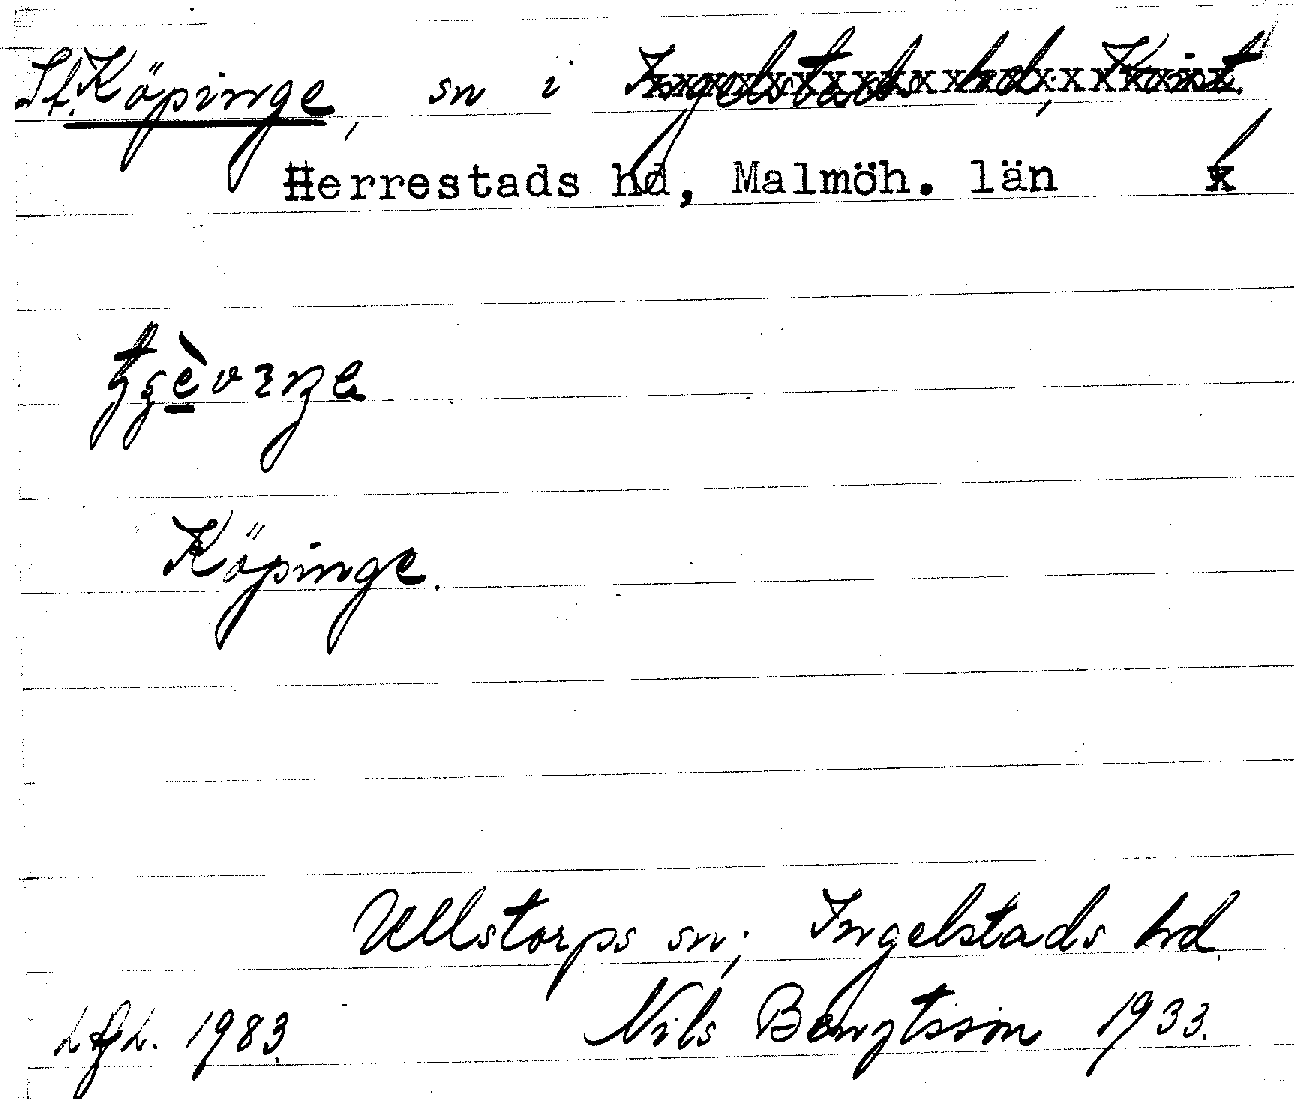 St. Köpinge, sn i Ingelstads hd, Krist.
Herrestads hd, Malmöh. län
Köpinge.
Ullstorps sn; Ingelstads hd.
1983. Nils Bengtsson 1933.